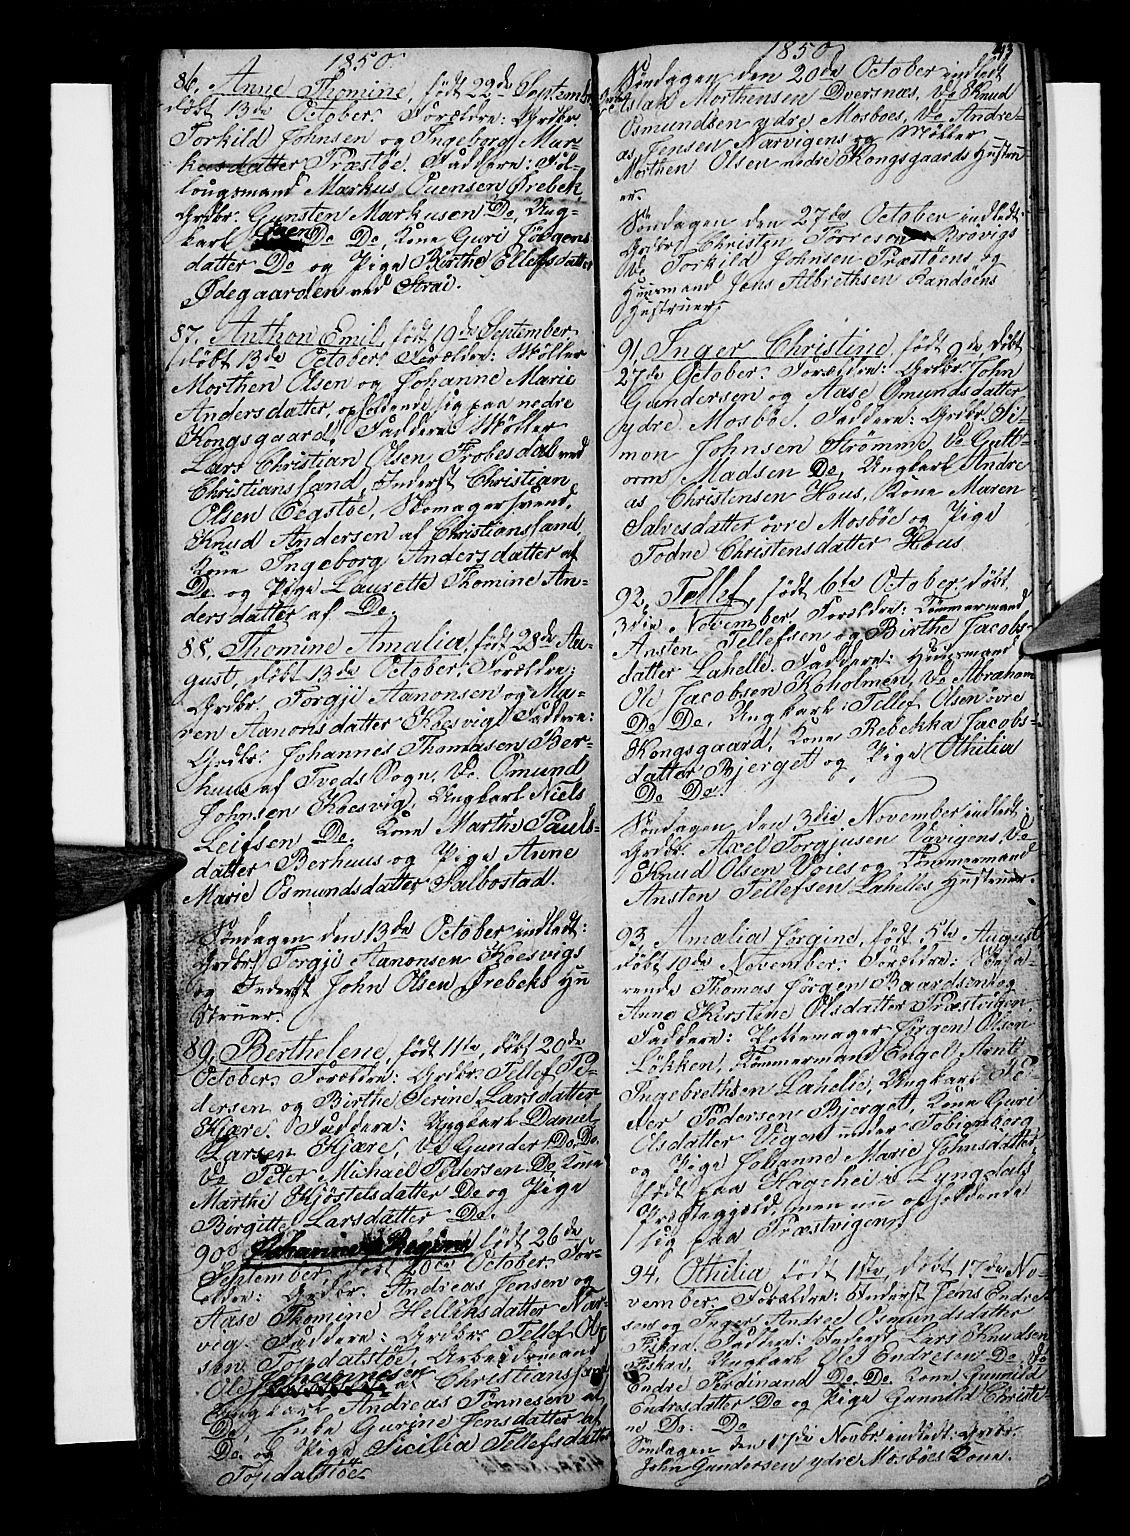 1850
86, Anne Thomine, født 29de Septemb:
døbt 13de October. Forældre: Grdbr
Torkild Johnsen og Ingeborg Mar-
kusdatter Træstøe. Faddere: Lil-
lougsmand Markus Evensen Drebek,
Grdbr: Gunsten Markusen Do, Ung-
karl Even Do Do, Kone Guri Jörgens
datter Do og Pige Birthe Ellefsdatter
Ødegaarden ved Strai.
87, Anthon Emil, født 19de September
døbt 13de October. Forældre: Møller
Morthen Olsen og Johanne Marie
Andersdatter, opholdende sig paa nedre
Kongsgaard, Faddere: Møller
Lars Christian Olsen Frobesdal ved
Christiansand, Inderst Christian
Olsen Eegstøe, Skomagersvend,
Knud Andersen af Christianssand
Kone Ingeborg Andersdatter af
Do og Pige Laurette Thomine An-
dersdatter af Do.
88, Thomine Amalia, født 28de Au-
gust, døbt 13de October. Forældre:
Grdbr. Torgji Aanonsen og Ma-
ren Aanonsdatter Koesvig. Faddere:
Grdbr: Johannes Thomasen Ber-
huus af Tveds Sogn, Do. Omund
Johnsen Koesvig, Ungkarl Niels
Leifsen Do. Kone Marthe Pauls-
datter Berhuus og Pige Anne
Marie Osmundsdatter Salbostad.
Søndagen den 13de October indledt:
Grdbr: Torgji Aanonsen Koesvigs
og Inderst John Olsen Drebeks Hu
struer.
89, Berthelene, født 11te, døbt 20de
October, Forældre: Grdbr: Tellef Pe-
dersen og Birthe Serine Larsdatter
Kjære. Faddere: Ungkarl Daniel
Larsen Kjære, Do Gunder Do Do.
Do Peter Michael Pedersen Do Kone
Marthe Kjöstelsdatter Do og Pige
Birgitte Larsdatter Do.
90, Johanne Regine, født 26de
September, døbt 20de October. For-
ældre: Grdbr. Andreas Jensen og
Aase Thomine Helliksdatter Nar-
vig. Faddere: Grdbr: Tellef Ol-
sen Topdalstøe, Arbeidsmand
Ole Johannesen af Christianssand
Ungkarl Andreas Tönnesen af
Do, Enke Gurine Jensdatter af
Do og Pige Sicilia Tellefsdatter
Topdalstöe
1850
Søndagen den 20de October indledt
Morthensen Dversnæs, Do Knud
Osmundsen ydre Mosboes, Do Andre-
as Jensen Narvigens og Møller
Morthen Olsen nedre Kongsgaards Hustru
er.
Søndagen den 27de October indledt:
Grdbr: Christen Torresen Brövigs
Do Torkild Johnsen Træstöens og
Huusmand Jens Albrethsen Randöens
Hustruer.
91, Inger Christine, født 9de døbt
27de October. Forældre: Grdbr. John
Gundersen og Aase Omundsdatter
ydre Mosböe. Faddere: Grdbr. Si-
mon Johnsen Strömme, Do Gutt-
orm Madsen Do, Ungkarl Andre
as Christensen Hous, Kone Maren
Salvesdatter övre Mosböe og Pige
Todne Christensdatter Hous
92, Tellef, født 6te October, døbt
3die November. Forældre: Tömmermand
Ansten Tellefsen og Birthe Jacobs-
datter Lahelle. Faddere: Huusmand
Ole Jacobsen Koholmen, Do Abraham
Do Do, Ungkarl Tellef Olsen övre
Kongsgaard, Kone Rebekka Jacobs-
datter Bjerget og Pige Othilia
Do Do.
Søndagen den 3die November indledt:
Grdbr. Axel Torgjusen Uvigens, Do
Knud Olsen Voies og Tömmermand
Ansten Tellefsen Lahelles Hustruer.
93, Amalia Jørgine, født 5te August
døbt 10de November. Forældre: Søefa-
rende Thomas Jörgen Baardsen og
Anne Kirstine Olsdatter Træstvigen.
Faddere: Pottemager Jörgen Olsen
Lökken, Tömmermand Engel Arnt
Ingebrethsen Lahelle, Ungkarl Pe-
der Pedersen Bjerget, Kone Guri
Olsdatter Vigen under Tobienborg
og Pige Johanne Marie Johnsdatter
født paa Hagehei i Lyngdals
Præstegjeld, men nu opholdende
sig paa Træstvigen.
94, Othilia, født 1ste, døbt 17de No-
vember. Forældre: Inderst Jens Endre-
sen og Inger Andrea Osmundsdatter
Fiskaa, Faddere: Inderst Lars Knudsen
Fiskaa, Ungkarl Ole Endresen Do, Do
Endre Ferdinand Do Do. Kone Gunild
Endresdatter Do og Pige Gunnild Birthe
ne Do. Do
Søndagen den 17de Novbr: indledt: Grdbr.
John Gundersen ydre Mosböes Kone.